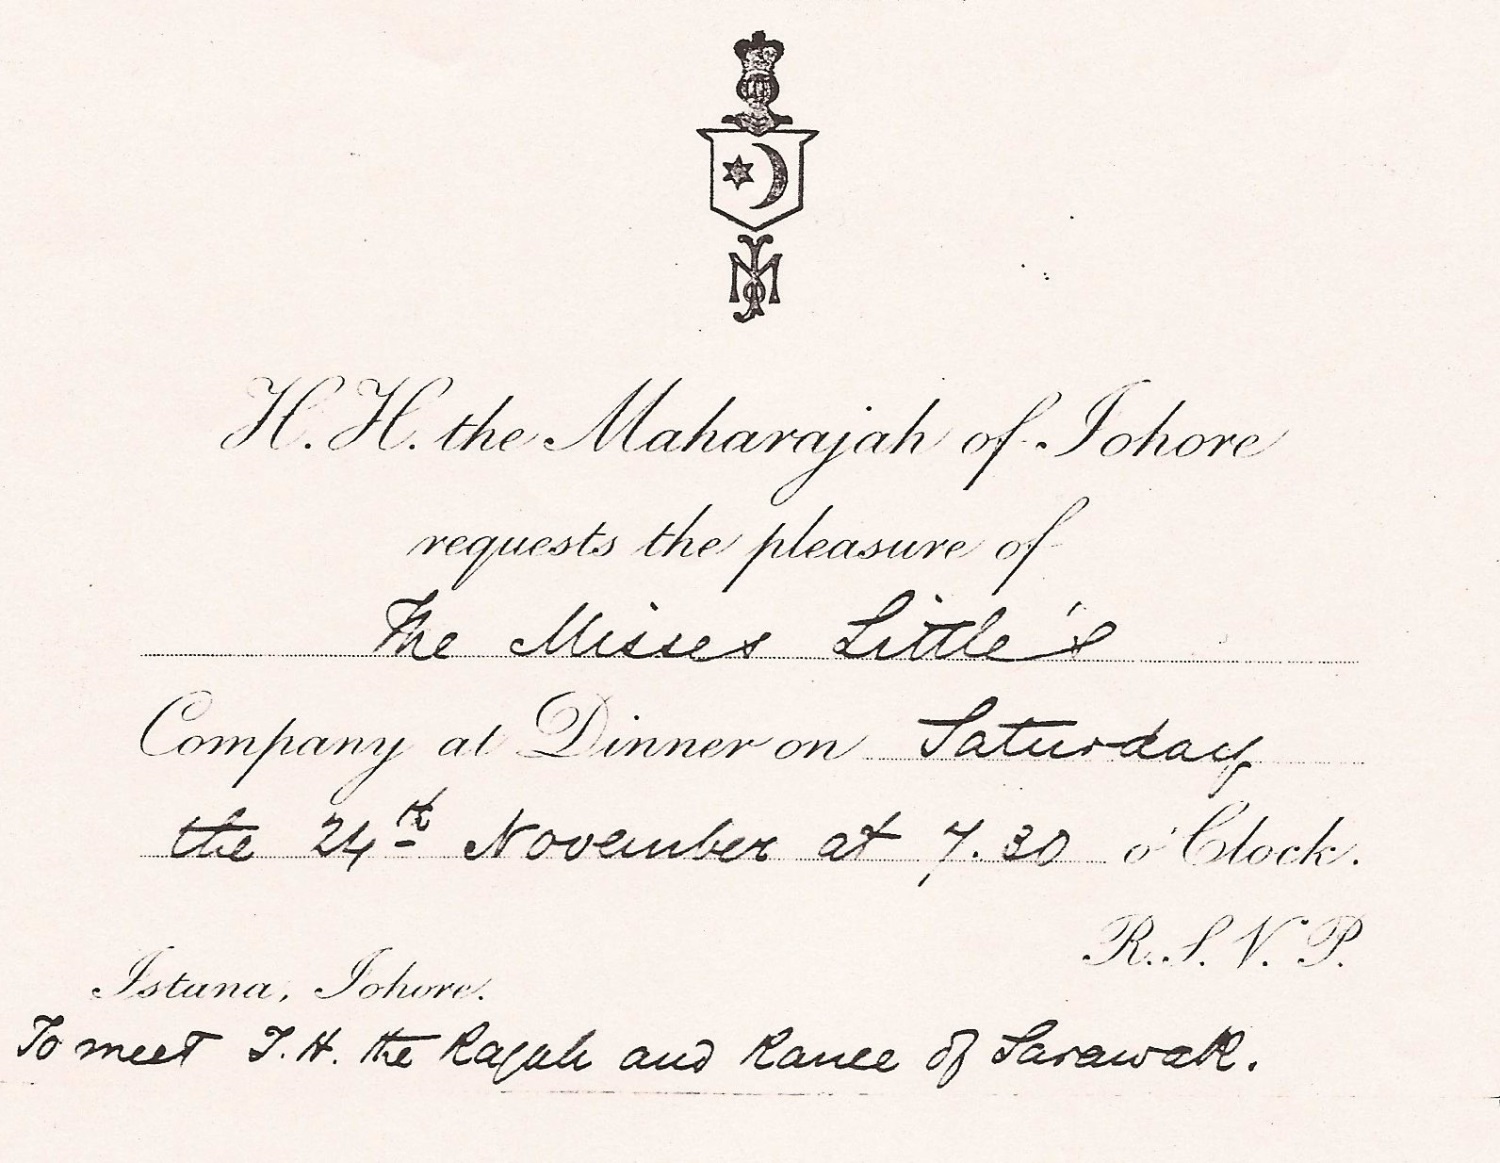 H. H. the Maharajah of Johore
requests the pleasure of
The Misses Little's
Company at Dinner on Saturday
the 24th November at 7.30 o'Clock.
R. S. V. P.
Istana, Johore.
To meet T. H. the Rajah and Ranee of Sarawak.